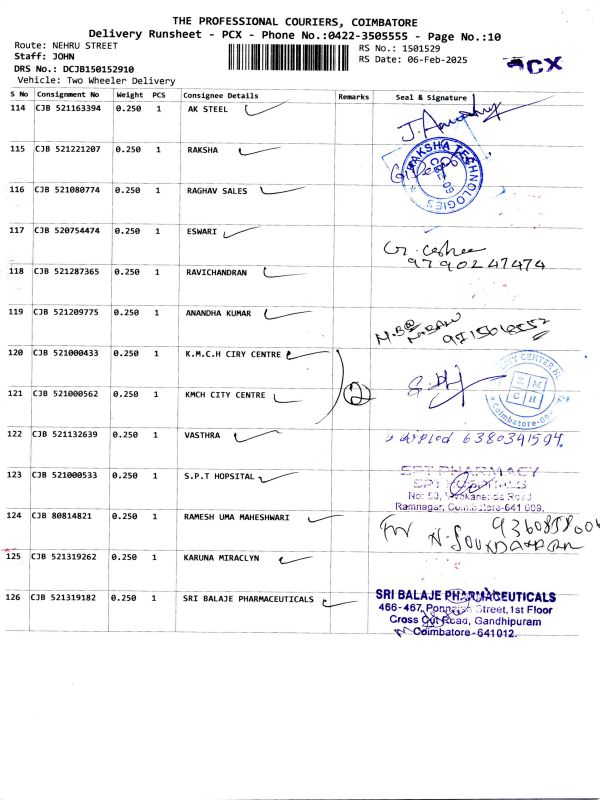 THE PROFESSIONAL COURIERS, COIMBATORE
Delivery Runsheet - PCX - Phone No.:0422-3505555 - Page No.:10
Route: NEHRU STREET
Staff: JOHN
DRS No.: DCJB150152910
Vehicle: Two Wheeler Delivery
RS No.: 1501529
RS Date: 06-Feb-2025
PCX
S No Consignment No Weight PCS Consignee Details Remarks Seal & Signature
114 CJB 521163394 0.250 1 AK STEEL
115 CJB 521221207 0.250 1 RAKSHA
RAKSHA TECHNOLOGIES
116 CJB 521080774 0.250 1 RAGHAV SALES
117 CJB 520754474 0.250 1 ESWARI
97902 47474
118 CJB 521287365 0.250 1 RAVICHANDRAN
119 CJB 521209775 0.250 1 ANANDHA KUMAR
120 CJB 521000433 0.250 1 K.M.C.H CIRY CENTRE
2
121 CJB 521000562 0.250 1 KMCH CITY CENTRE
CITY CENTER
K M
C H
Coimbatore
122 CJB 521132639 0.250 1 VASTHRA
6380341594.
123 CJB 521000533 0.250 1 S.P.T HOPSITAL
SPT PHARMACY
SPT HOSPITALS
No: 50, Vivekananda Road
Ramnagar, Coimbatore-641 009.
124 CJB 80814821 0.250 1 RAMESH UMA MAHESHWARI
for
125 CJB 521319262 0.250 1 KARUNA MIRACLYN
126 CJB 521319182 0.250 1 SRI BALAJE PHARMACEUTICALS
SRI BALAJE PHARMACEUTICALS
466-467, Ponnaian Street, 1st Floor
Cross Cut Road, Gandhipuram
Coimbatore-641012.